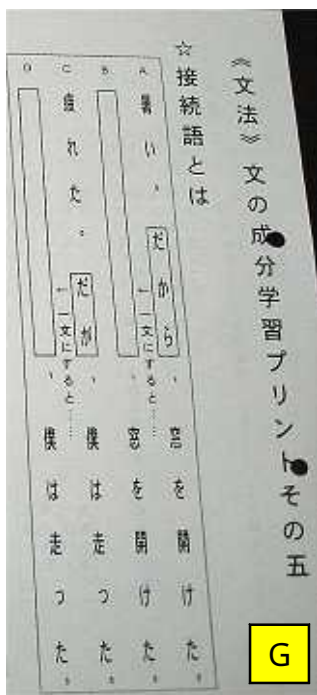 《文法》文の成分学習プリントその五
☆接続語とは
A 暑い。だから、窓を開けた。
↓一文にすると……
B 、窓を開けた。
C 疲れた。だが、僕は走った。
↓一文にすると……
D 、僕は走った。
G